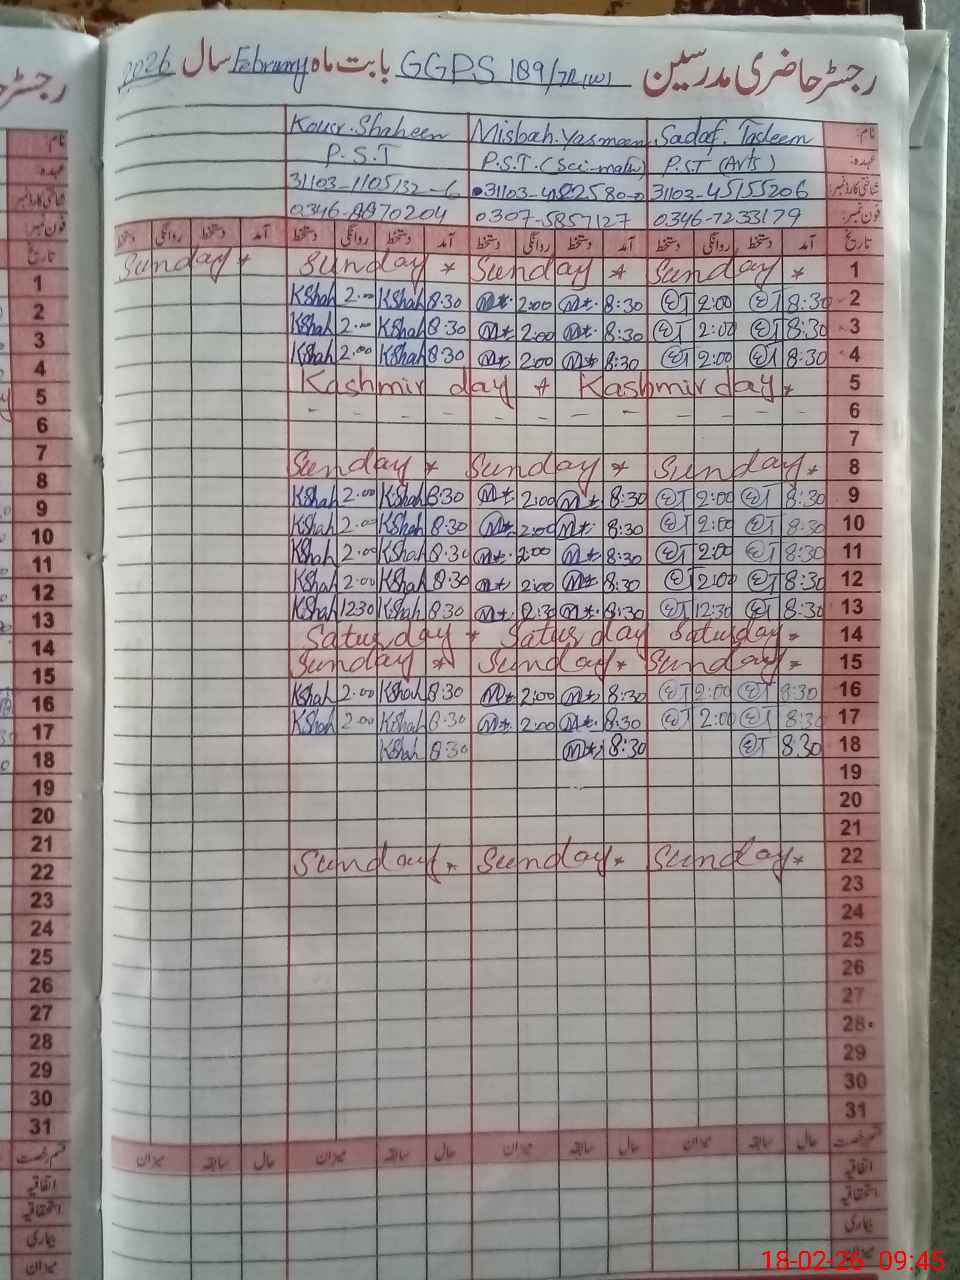 رجسٹر حاضری مدرسین GGPS 189/7R(W) بابت ماہ February سال 2026
نام: Sadaf. Tasleem Misbah. Yasmeen Kousr. Shaheen
عہدہ: P.S.T (Arts) P.S.T. (Sci-math) P.S.T
شناختی کارڈ نمبر:
فون نمبر: 0346-7233179 0307-5857127 0346-8870204
تاریخ آمد دستخط روانگی دستخط آمد دستخط روانگی دستخط آمد دستخط روانگی دستخط آمد دستخط روانگی دستخط
Sunday * Sunday * Sunday * Sunday * 1
KShah 2.00 KShah 8:30 M*. 2:00 M*. 8:30 ST 2:00 ST 8:30 2
KShah 2.00 KShah 8:30 M*. 2:00 M*. 8:30 ST 2:00 ST 8:30 3
KShah 2.00 KShah 8:30 M*. 2:00 M*. 8:30 ST 2:00 ST 8:30 4
Kashmir day * Kashmir day * 5
- - - - - - - - - 6
7
Sunday * Sunday * Sunday * 8
KShah 2.00 KShah 8:30 M*. 2:00 M*. 8:30 ST 2:00 ST 8:30 9
KShah 2.00 KShah 8:30 M*. 2:00 M*. 8:30 ST 2:00 ST 8:30 10
KShah 2.00 KShah 8:30 M*. 2:00 M*. 8:30 ST 2:00 ST 8:30 11
KShah 2.00 KShah 8:30 M*. 2:00 M*. 8:30 ST 2:00 ST 8:30 12
KShah 1230 KShah 8:30 M*. 12:30 M*. 8:30 ST 12:30 ST 8:30 13
Saturday * Saturday Saturday * 14
Sunday * Sunday * Sunday * 15
KShah 2.00 KShah 8:30 M*. 2:00 M*. 8:30 ST 2:00 ST 8:30 16
KShah 2.00 KShah 8:30 M*. 2:00 M*. 8:30 ST 2:00 ST 8:30 17
KShah 8:30 M*. 8:30 ST 8:30 18
19
20
21
Sunday * Sunday * Sunday * 22
23
24
25
26
27
28
29
30
31
قسم رخصت حال سابقہ میزان حال سابقہ میزان حال سابقہ میزان حال سابقہ میزان
اتفاقیہ
استحقاقیہ
بیماری
میزان
18-02-26 09:45